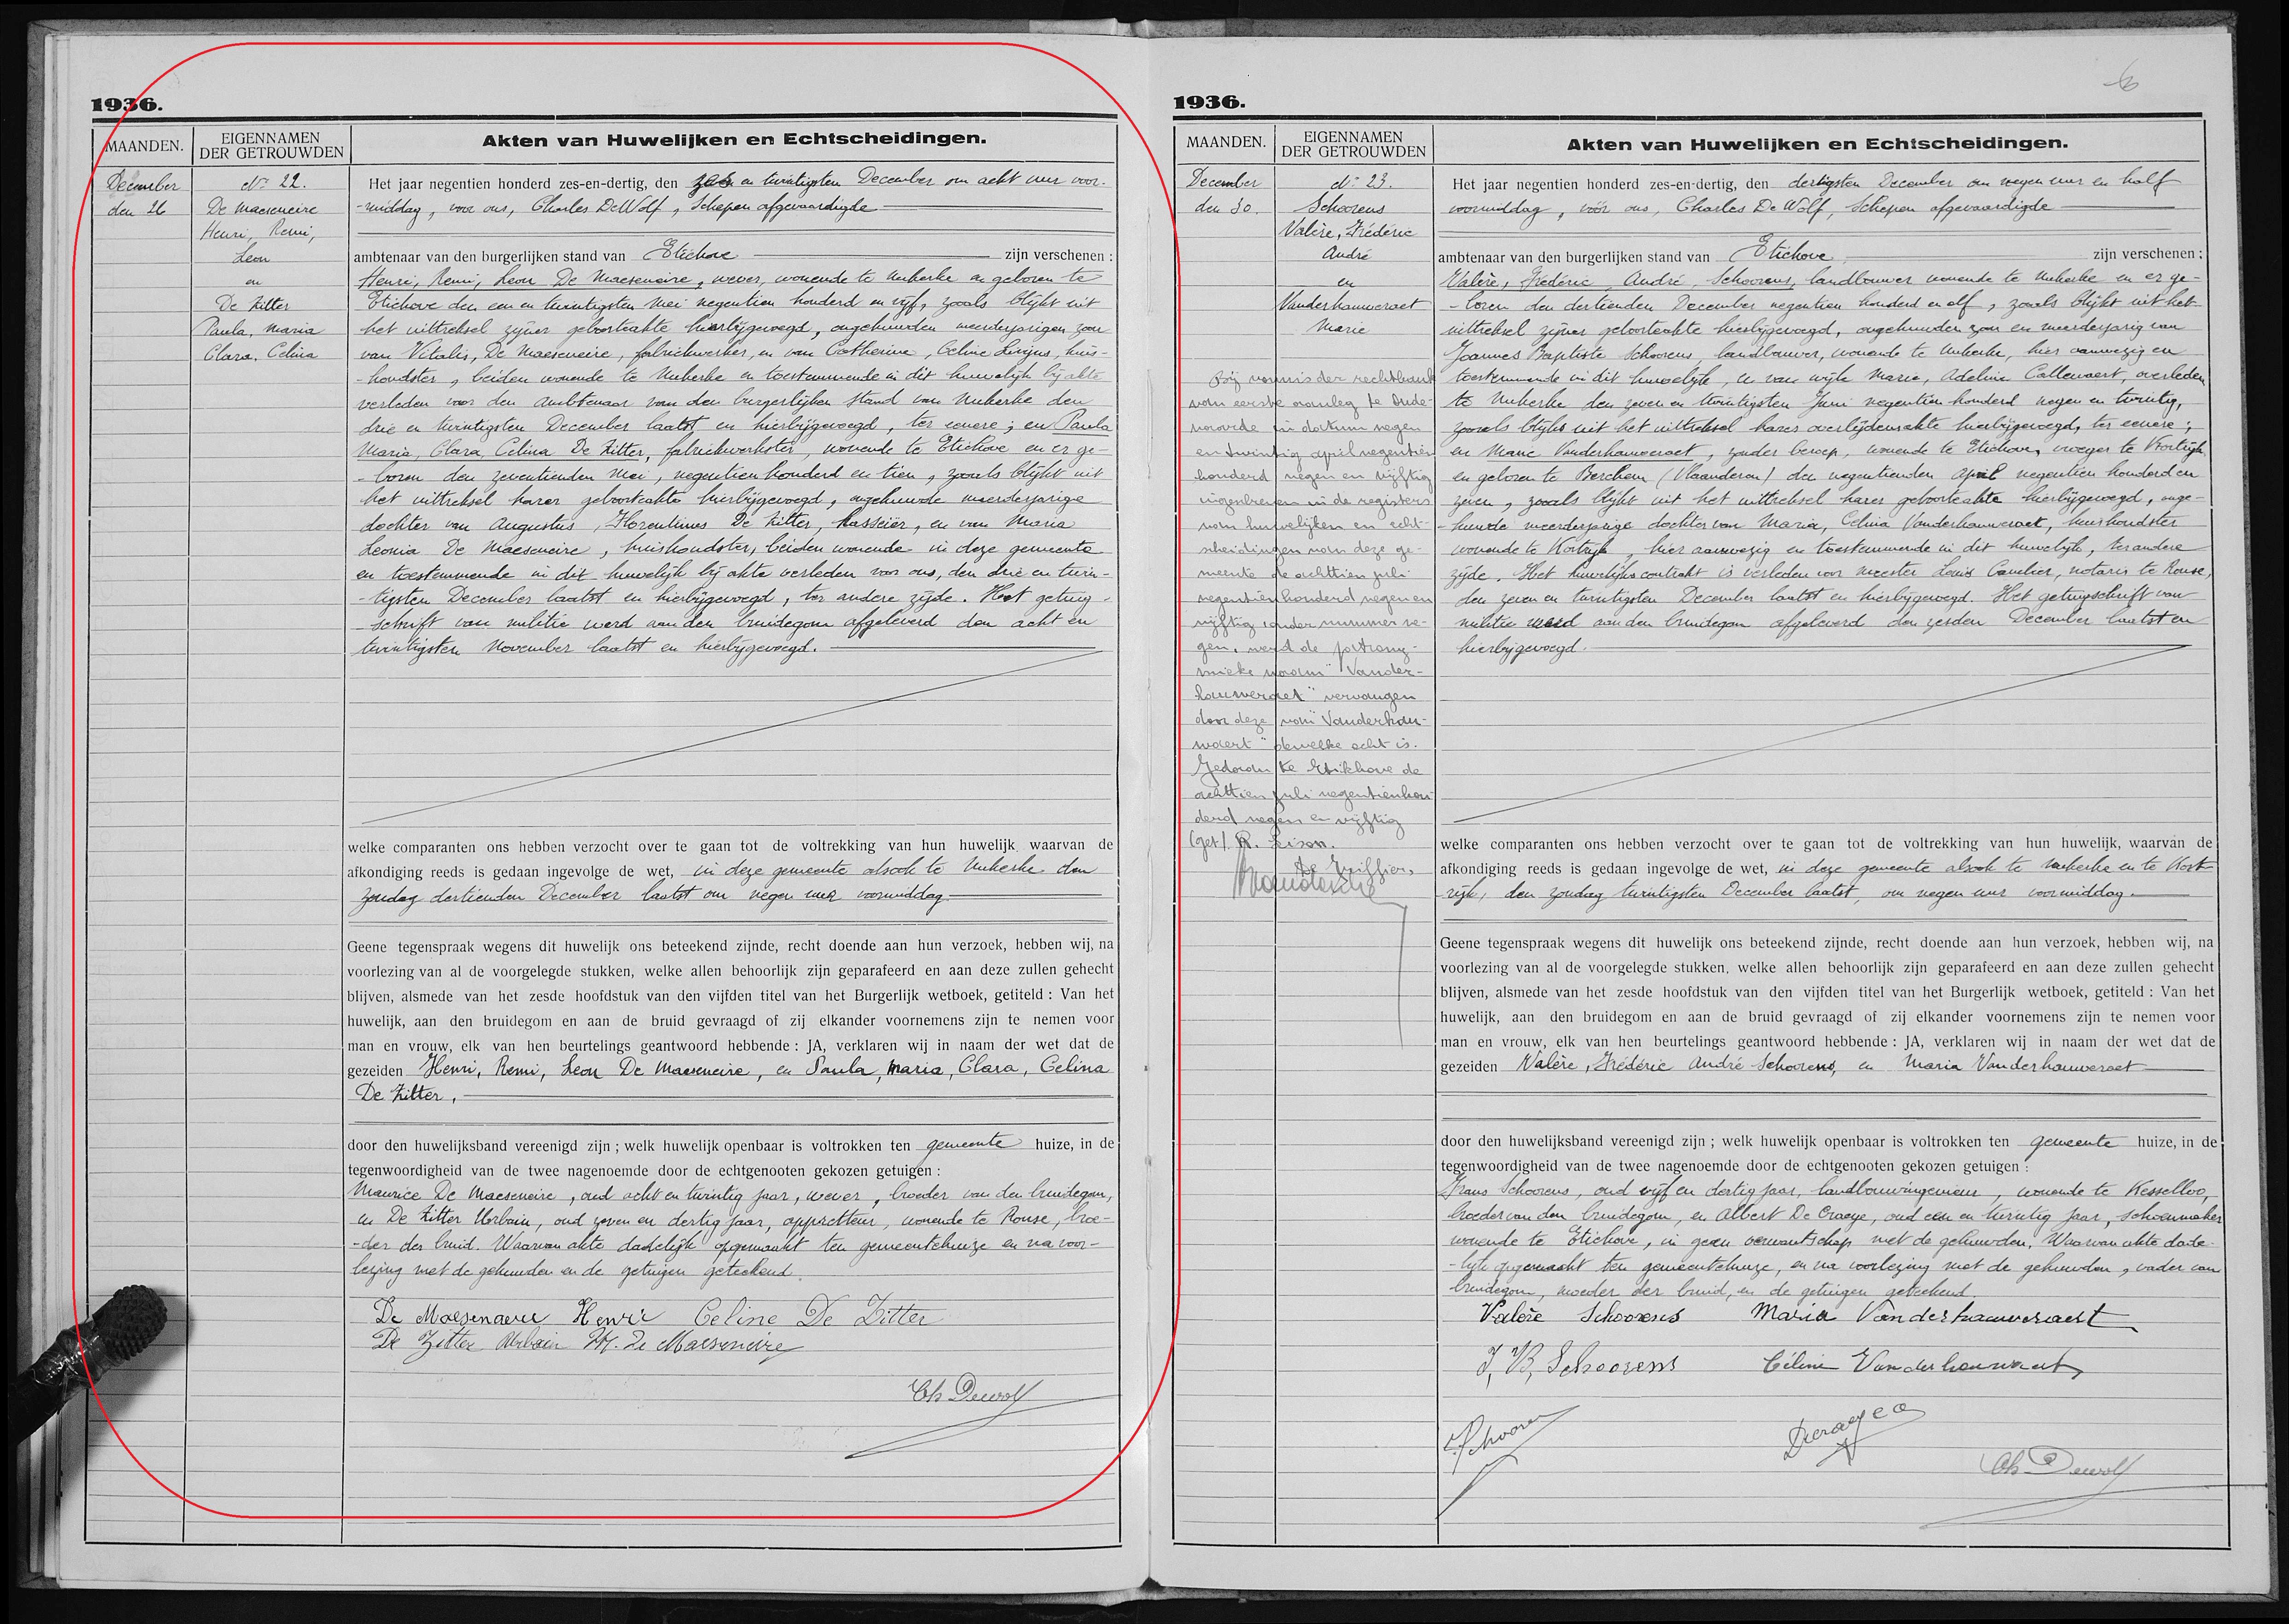 1936.
MAANDEN.
EIGENNAMEN
DER GETROUWDEN
Akten van Huwelijken en Echtscheidingen.
December
den 26
No 22.
De Maeseneire
Henri, Remi,
Leon
en
De Zitter
Paula, Maria
Clara, Celina
Het jaar negentien honderd zes-en-dertig, den zes en twintigsten December om acht uur voor-
-middag, voor ons, Charles De Wolf, Schepen afgevaardigde
ambtenaar van den burgerlijken stand van Etichove zijn verschenen :
Henri, Remi, Leon De Maeseneire, wever, wonende te Nukerke en geboren te
Etichove den een en twintigsten Mei negentien honderd en vijf, zooals blijkt uit
het uittreksel zijner geboorteakte hierbijgevoegd, ongehuwden meerderjarigen zoon
van Vitalis, De Maeseneire, fabriekwerker, en van Catherine, Celine huis-
-houdster, beiden wonende te Nukerke en toestemmende in dit huwelijk bij akte
verleden voor den Ambtenaar van den burgerlijken Stand van Nukerke den
drie en twintigsten December laatst en hierbijgevoegd, ter eenere ; en Paula
Maria, Clara, Celina De Zitter, fabriekwerkster, wonende te Etichove en er ge-
-boren den zeventienden Mei, negentien honderd en tien, zooals blijkt uit
het uittreksel harer geboorteakte hierbijgevoegd, ongehuwde meerderjarige
dochter van Augustus, Florentinus De Zitter, kasseier, en van Maria
Leonia De Maeseneire, huishoudster, beiden wonende in deze gemeente
en toestemmende in dit huwelijk bij akte verleden voor ons, den drie en twin-
-tigsten December laatst en hierbijgevoegd, ter andere zijde. Het getuig-
-schrift van militie werd aan den bruidegom afgeleverd den acht en
twintigsten November laatst en hierbijgevoegd.
welke comparanten ons hebben verzocht over te gaan tot de voltrekking van hun huwelijk, waarvan de
afkondiging reeds is gedaan ingevolge de wet, in deze gemeente alsook te Nukerke den
zondag dertienden December laatst om negen uur voormiddag
Geene tegenspraak wegens dit huwelijk ons beteekend zijnde, recht doende aan hun verzoek, hebben wij, na
voorlezing van al de voorgelegde stukken, welke allen behoorlijk zijn geparafeerd en aan deze zullen gehecht
blijven, alsmede van het zesde hoofdstuk van den vijfden titel van het Burgerlijk wetboek, getiteld : Van het
huwelijk, aan den bruidegom en aan de bruid gevraagd of zij elkander voornemens zijn te nemen voor
man en vrouw, elk van hen beurtelings geantwoord hebbende : JA, verklaren wij in naam der wet dat de
gezeiden Henri, Remi, Leon De Maeseneire, en Paula, Maria, Clara, Celina
De Zitter,
door den huwelijksband vereenigd zijn ; welk huwelijk openbaar is voltrokken ten gemeente huize, in de
tegenwoordigheid van de twee nagenoemde door de echtgenooten gekozen getuigen :
Maurice De Maeseneire, oud acht en twintig jaar, wever, broeder van den bruidegom,
en De Zitter Urbain, oud zeven en dertig jaar, appretteur, wonende te Ronse, broe-
-der der bruid. Waarvan akte dadelijk opgemaakt ten gemeentehuize en na voor-
lezing met de gehuwden en de getuigen geteekend.
De Maesenaere Henri Celine De Zitter
De Zitter Urbain M. De Maeseneire
Ch Dewolf
6
1936.
MAANDEN.
EIGENNAMEN
DER GETROUWDEN
Akten van Huwelijken en Echtscheidingen.
December
den 30.
No 23.
Schoorens
Valère, Frédéric
André
en
Vanderhauweraet
Marie
Bij vonnis der rechtbank
van eerste aanleg te Oude-
naarde in datum negen
en twintig april negentien
honderd negen en vijftig
ingeschreven in de registers
van huwelijken en echt-
scheidingen van deze ge-
meente de achttien juli
negentien honderd negen en
vijftig onder nummer ne-
gen, werd de patrony-
mieke naam "Vander-
hauweraet" vervangen
door deze van "Vanderhau-
waert" dewelke echt is.
Gedaan te Etikhove de
achttien juli negentienhon-
derd negen en vijftig
(get). R.
De Griffier,
Het jaar negentien honderd zes-en-dertig, den dertigsten December om negen uur en half
voormiddag, vóór ons, Charles De Wolf, Schepen afgevaardigde
ambtenaar van den burgerlijken stand van Etichove zijn verschenen :
Valère, Frédéric, André, Schoorens, landbouwer wonende te Nukerke en er ge-
-boren den dertienden December negentien honderd en elf, zooals blijkt uit het
uittreksel zijner geboorteakte hierbijgevoegd, ongehuwden zoon en meerderjarig van
Joannes Baptiste Schoorens, landbouwer, wonende te Nukerke, hier aanwezig en
toestemmende in dit huwelijk, en van wijle Marie, Adeline Callewaert, overleden
te Nukerke den zeven en twintigsten Juni negentien honderd negen en twintig,
zooals blijkt uit het uittreksel harer overlijdensakte hierbijgevoegd, ter eenere ;
en Marie Vanderhauweraet, zonder beroep, wonende te Etichove, vroeger te Kortrijk
en geboren te Berchem (Vlaanderen) den negentienden April negentien honderd en
zeven, zooals blijkt uit het uittreksel harer geboorteakte hierbijgevoegd, onge-
-huwde meerderjarige dochter van Maria, Celina Vanderhauweraet, huishoudster
wonende te Kortrijk, hier aanwezig en toestemmende in dit huwelijk, ter andere
zijde. Het huwelijkscontrakt is verleden voor meester Louis Cambier, notaris te Ronse,
den zeven en twintigsten December laatst en hierbijgevoegd. Het getuigschrift van
militie werd aan den bruidegom afgeleverd den zesden December laatst en
hierbijgevoegd.
welke comparanten ons hebben verzocht over te gaan tot de voltrekking van hun huwelijk, waarvan de
afkondiging reeds is gedaan ingevolge de wet, in deze gemeente alsook te Nukerke en te Kort-
-rijk, den zondag twintigsten December laatst, om negen uur voormiddag.
Geene tegenspraak wegens dit huwelijk ons beteekend zijnde, recht doende aan hun verzoek, hebben wij, na
voorlezing van al de voorgelegde stukken, welke allen behoorlijk zijn geparafeerd en aan deze zullen gehecht
blijven, alsmede van het zesde hoofdstuk van den vijfden titel van het Burgerlijk wetboek, getiteld : Van het
huwelijk, aan den bruidegom en aan de bruid gevraagd of zij elkander voornemens zijn te nemen voor
man en vrouw, elk van hen beurtelings geantwoord hebbende : JA, verklaren wij in naam der wet dat de
gezeiden Valère, Frédéric André Schoorens, en Maria Vanderhauweraet
door den huwelijksband vereenigd zijn ; welk huwelijk openbaar is voltrokken ten gemeente huize, in de
tegenwoordigheid van de twee nagenoemde door de echtgenooten gekozen getuigen :
Frans Schoorens, oud vijf en dertig jaar, landbouwingenieur, wonende te Kesselloo,
broeder van den bruidegom, en Albert De Craeye, oud een en twintig jaar, schoenmaker
wonende te Etichove, in geen verwantschap met de gehuwden. Waarvan akte dade-
-lijk opgemaakt ten gemeentehuize, en na voorlezing met de gehuwden, vader van
bruidegom, moeder der bruid, en de getuigen geteekend.
Valère Schoorens Maria Vanderhauweraert
J, B, Schoorens Céline Vanderhauwaert
F. Schoorens
Decraeye a
Ch Dewolf